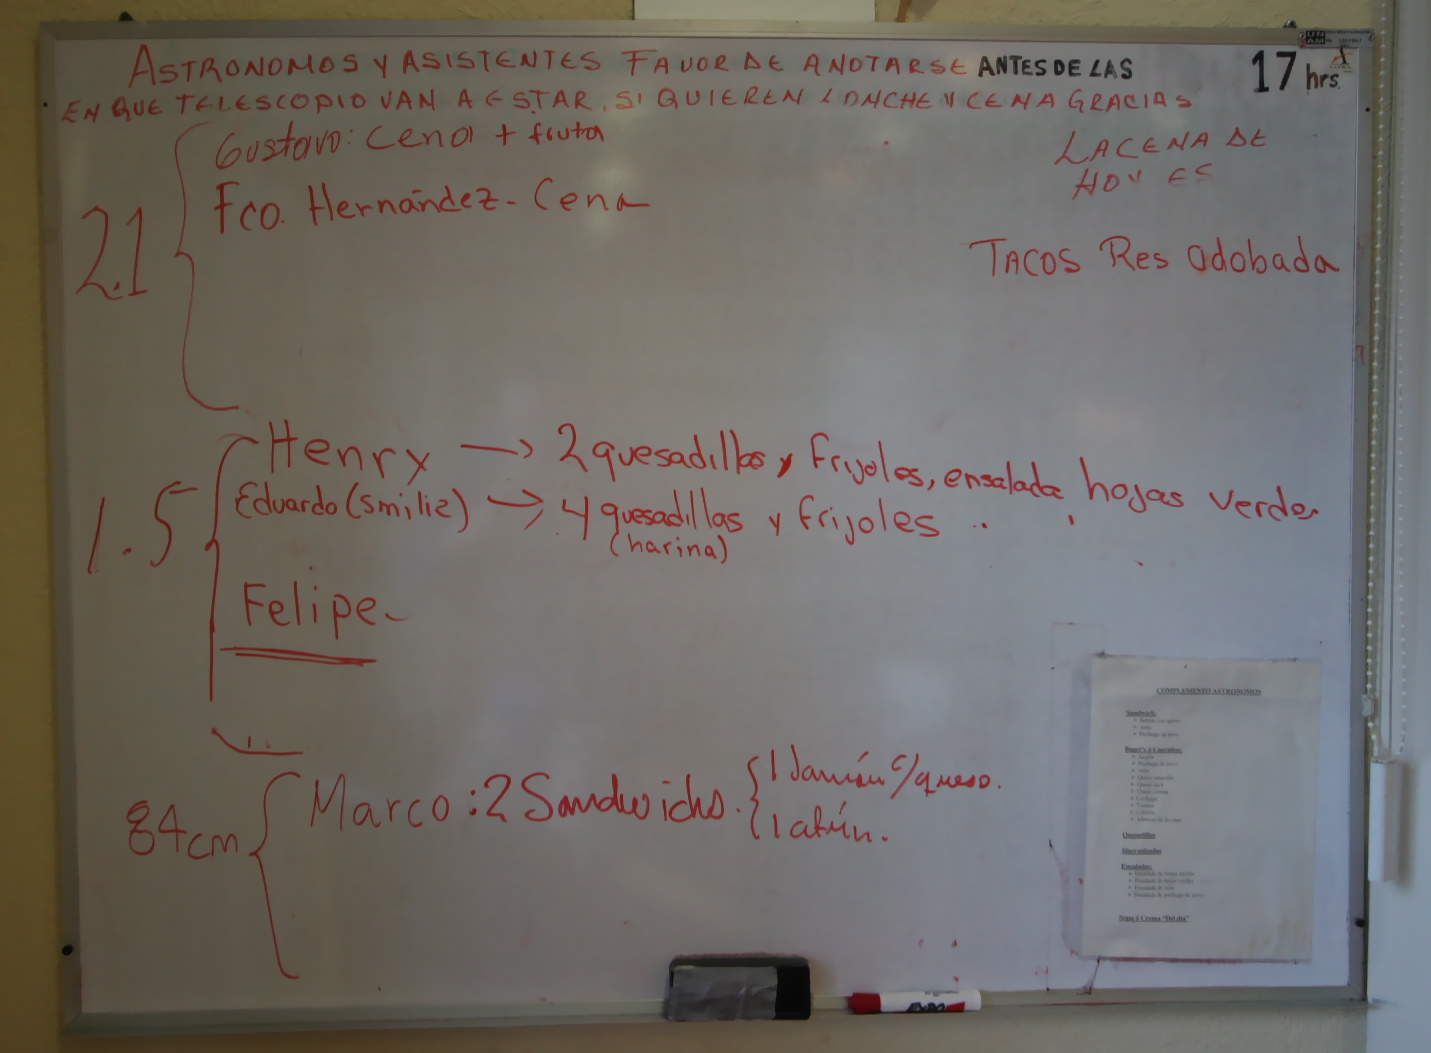 ASTRONOMOS Y ASISTENTES FAVOR DE ANOTARSE ANTES DE LAS 17 hrs.
EN QUE TELESCOPIO VAN A ESTAR, SI QUIEREN LONCHE Y CENA GRACIAS
LA CENA DE
HOY ES
TACOS Res adobada
2.1
Gustavo: Cena + fruta
Fco. Hernández - Cena
1.5
Henry → 2 quesadillas y frijoles, ensalada hojas verdes
Eduardo (Smiliz) → 4 quesadillas y frijoles
(harina)
Felipe
84cm
Marco: 2 Sandwichs.
1 Jamón c/queso.
1 atún.
COMPLEMENTO ASTRONOMOS
Sandwich:
Quesadillas
Sincronizadas
Ensaladas:
Sopa ó Crema "Del día"